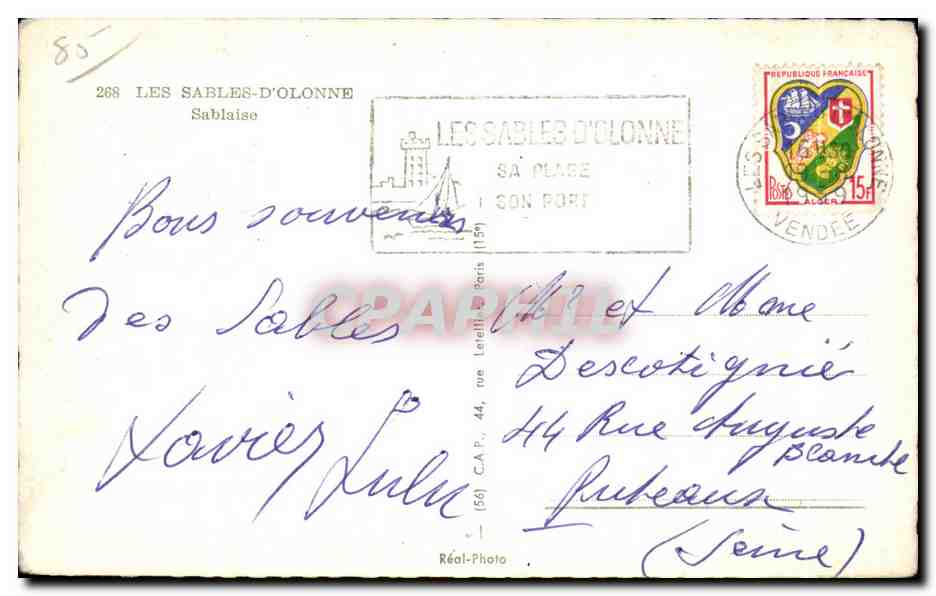 85
268 LES SABLES-D'OLONNE
Sablaise
LES SABLES D'OLONNE
SA PLAGE
SON PORT
REPUBLIQUE FRANÇAISE
POSTES
15F
ALGER
VENDÉE
Bons souvenirs
Des Sables
Xavier Lulu
(56) C.A.P., 44, rue Letellier, Paris (15e)
Réal-Photo
CPAPHIL
Mr et Mme
Descotignié
44 Rue Auguste
Blanche
Puteaux
(Seine)